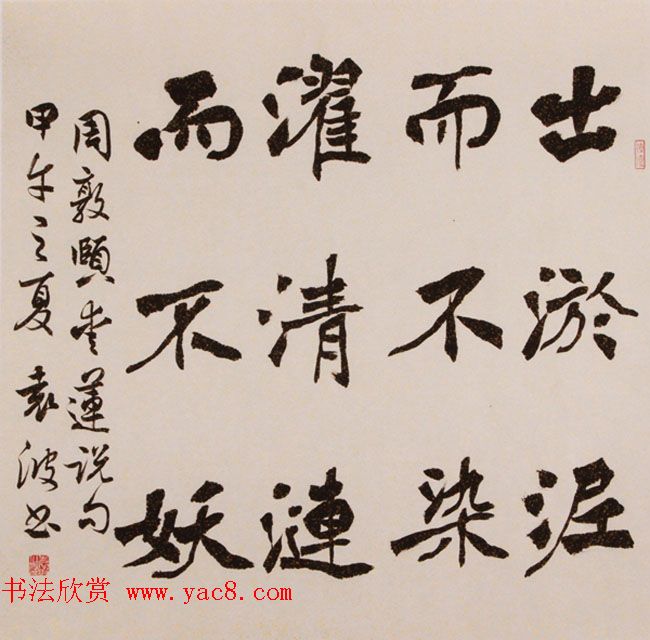 出淤泥
而不染
濯清漣
而不妖
周敦頤愛蓮説句
甲午之夏 袁波書
书法欣赏 www.yac8.com